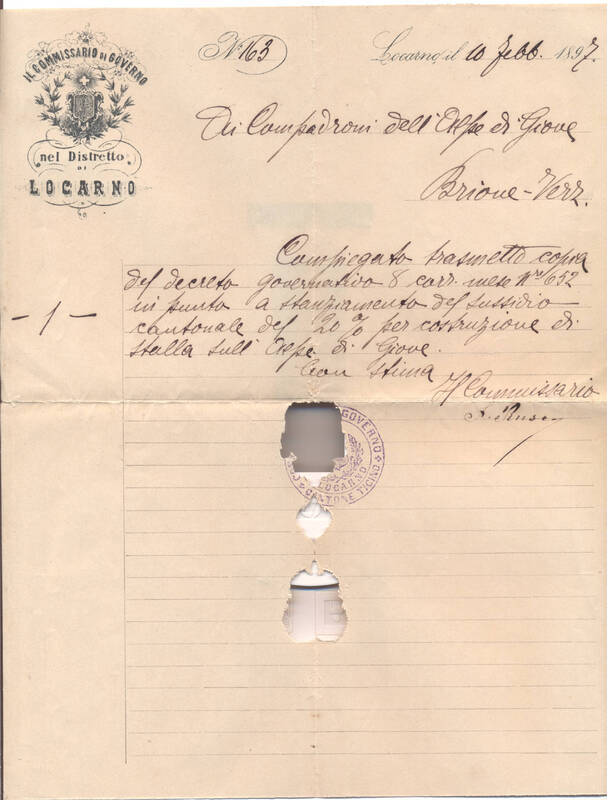 IL COMMISSARIO DI GOVERNO
nel Distretto
DI
LOCARNO
N.º 163
Locarno, il 10 Febb. 1897.
Ai Compadroni dell'Alpe di Giove
Brione-Verz.
Compiegato trasmetto copia
del decreto governativo 8 corr. mese Nro 652
in punto a stanziamento del sussidio
- 1 -
cantonale del 20% per costruzione di
stalla sull'Alpe di Giove.
Con stima
Il Commissario
GOVERNO
LOCARNO
CANTONE TICINO